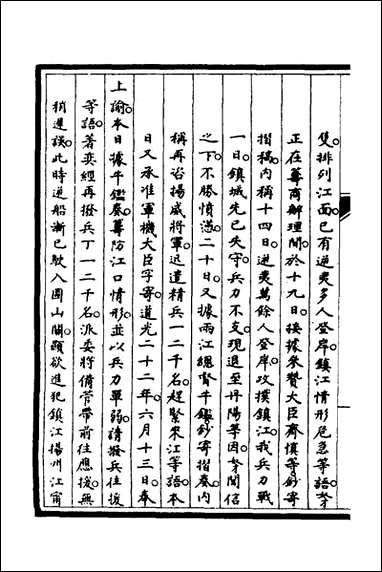 雙排列江面已有逆夷多人登岸鎮江情形危急等語才
正在籌商辦理間於十九日接據參贊大臣齊慎等鈔寄
摺稿內稱十四日逆夷萬餘人登岸攻撲鎮江我兵力戰
一日鎮城先已失守兵力不支現退至丹陽等因才聞信
之下不勝憤懣二十日又據兩江總督牛鑑鈔寄摺奏內
稱再咨揚威將軍迅遣精兵一二千名趕緊來江等語本
日又承准軍機大臣字寄道光二十二年六月十三日奉
上諭本日據牛鑑奏籌防江口情形並以兵力單弱請撥兵往援
等語著奕經再撥兵丁一二千名派委將備管帶前往應援無
稍遲誤此時逆船漸已駛入圌山關頭欲進犯鎮江揚州江甯